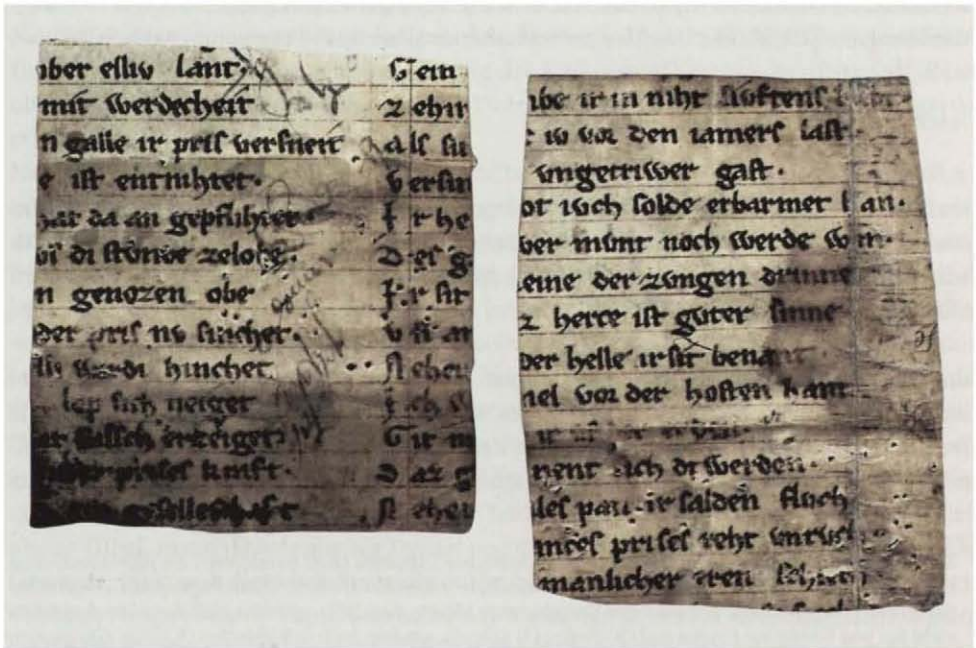 ober elliv lant.
mit werdecheit
n galle ir pris versneit
e ist entnihtet.
hat da an gepflihtet.
vs di stvnde zelobe.
n genozen obe
der pris nv sincher.
lliv werdi hinchet
lop sich neiget
at valsch erzeiget
der prises kraft.
ein geselleschaft
Gein
Z ehn
a ls su
v ersin
I r he
D es g
I r sit
v
N ehei
I ch
G ir m
D az g
N ehei
abe ir in niht sivftens
iv vor den iamers last.
vngetriwer gast.
ot iuch solde erbarmet han.
ver mvnt noch werde wan.
eine der zvngen drinne
z herce ist gvter sinne
der helle ir sit benant
mel vor der hosten hant
ir uf der erden.
nent sich di werden.
iles pan. ir salden fluch
nces prises reht vnruch
manlicher eren